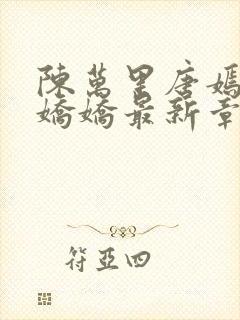 陳萬里唐嫣
嬌嬌最新章
符亞四